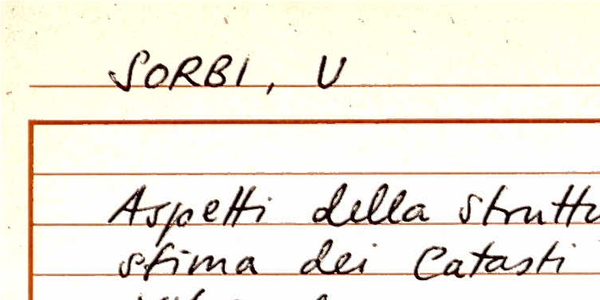 SORBI, U
Aspetti della struttu
stima dei Catasti